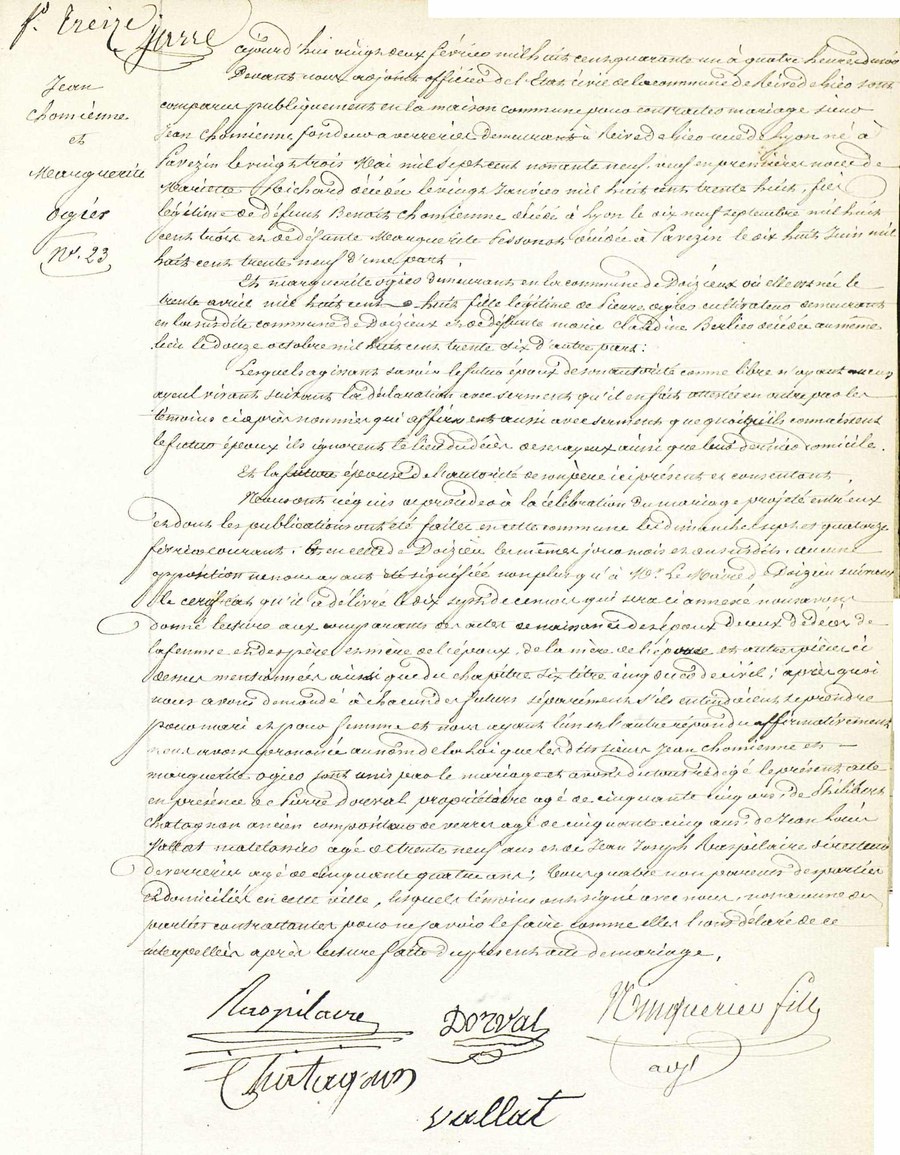 fo. treize
Jean
Chomienne
et
Marguerite
ogier
No. 23
cejourd'hui vingt deux février mil huit cent quarante un à quatre heures du soir
Devant nous adjoint officier de l'Etat civil de la commune de Rivedegier sont
comparus publiquement en la maison commune pour contracter mariage sieur
Jean Chomienne fondeur a verrerie demeurant à Rivedegier rue de Lyon né à
Pavezin le vingt trois Mai mil sept cent nonante neuf, veuf en première noce de
Mariette Richard décédée le vingt Janvier mil huit cent trente huit, fils
légitime de défunt Benoit Chomienne décédé à Lyon le dix neuf septembre mil huit
cent trois et de défunte Marguerite Bessonat décédée à Pavezin le dix huit Juin mil
huit cent trente neuf d'une part.
Et marguerite ogier demeurant en la commune de Doizieux où elle est née le
trente avril mil huit cent huit fille légitime de Pierre ogier cultivateur demeurant
en la susdite commune de Doizieux et de défunte marie Claudine Berlier décédée au même
lieu le douze octobre mil huit cent trente six d'autre part:
Lesquels agissant savoir le futur époux de son autorité comme libre n'ayant aucun
ayeul vivant suivant la déclaration avec serment qu'il en fait attestée en outre par les
témoins ci après nommés qui affirment aussi avec serment que quoiqu'ils connaissent
le futur époux ils ignorent le lieu du décès de ses ayeux ainsi que leur dernier domicile.
Et la future épouse de l'autorité de son père ici présent et consentant.
Nous ont requis de procéder à la célébration du mariage projeté entre eux
et dont les publications ont été faites en cette commune les dimanches sept et quatorze
février courant, et en celle de Doizieu les mêmes jours mois et an susdits, aucune
opposition ne nous ayant été signifiée non plus qu'à Mr. Le Maire de Doizieu suivant
le certificat qu'il a délivré le dix sept de ce mois qui sera ci annexé nous avons
donné lecture aux comparants des actes de naissance des époux de ceux de décès de
la femme et des père et mère de l'époux, de la mère de l'épouse et autres pièces ci
dessus mentionnées ainsi que du chapitre six titre cinq du code civil; après quoi
nous avons demandé à chacun des futurs séparément s'ils entendaient se prendre
pour mari et pour femme et nous ayant l'un et l'autre répondu affirmativement
nous avons prononcé au nom de la Loi que les dits sieurs Jean Chomienne et
marguerite ogier sont unis par le mariage et avons du tout rédigé le présent acte
en présence de Pierre Dorval propriétaire agé de cinquante cinq ans, de Philibert
Chatagnon ancien compositeur de verres agé de cinquante cinq ans, de Jean Louis
Vallat matelassier agé de trente neuf ans et de Jean Joseph Raspilaire directeur
de verreries agé de cinquante quatre ans; tous quatre non parents des parties
et domiciliés en cette ville, lesquels témoins ont signé avec nous, non aucune des
parties contractantes pour ne savoir le faire comme elles l'ont déclaré de ce
interpellées après lecture faite du présent acte de mariage.
Raspilaire
Dorval
fils
adjt
Chatagnon
vallat